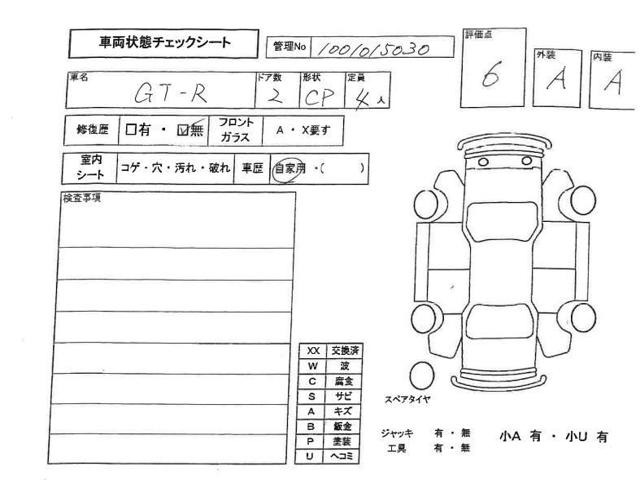 車両状態チェックシート
管理No 1001015030
評価点 6
外装 A
内装 A
車名 GT-R
ドア数 2
形状 CP
定員 4人
修復歴 □有・☑無
フロントガラス A・X要す
室内シート コゲ・穴・汚れ・破れ
車歴 自家用・( )
検査事項
XX 交換済
W 波
C 腐食
S サビ
A キズ
B 鈑金
P 塗装
U ヘコミ
スペアタイヤ
ジャッキ 有・無
工具 有・無
小A 有・小U 有